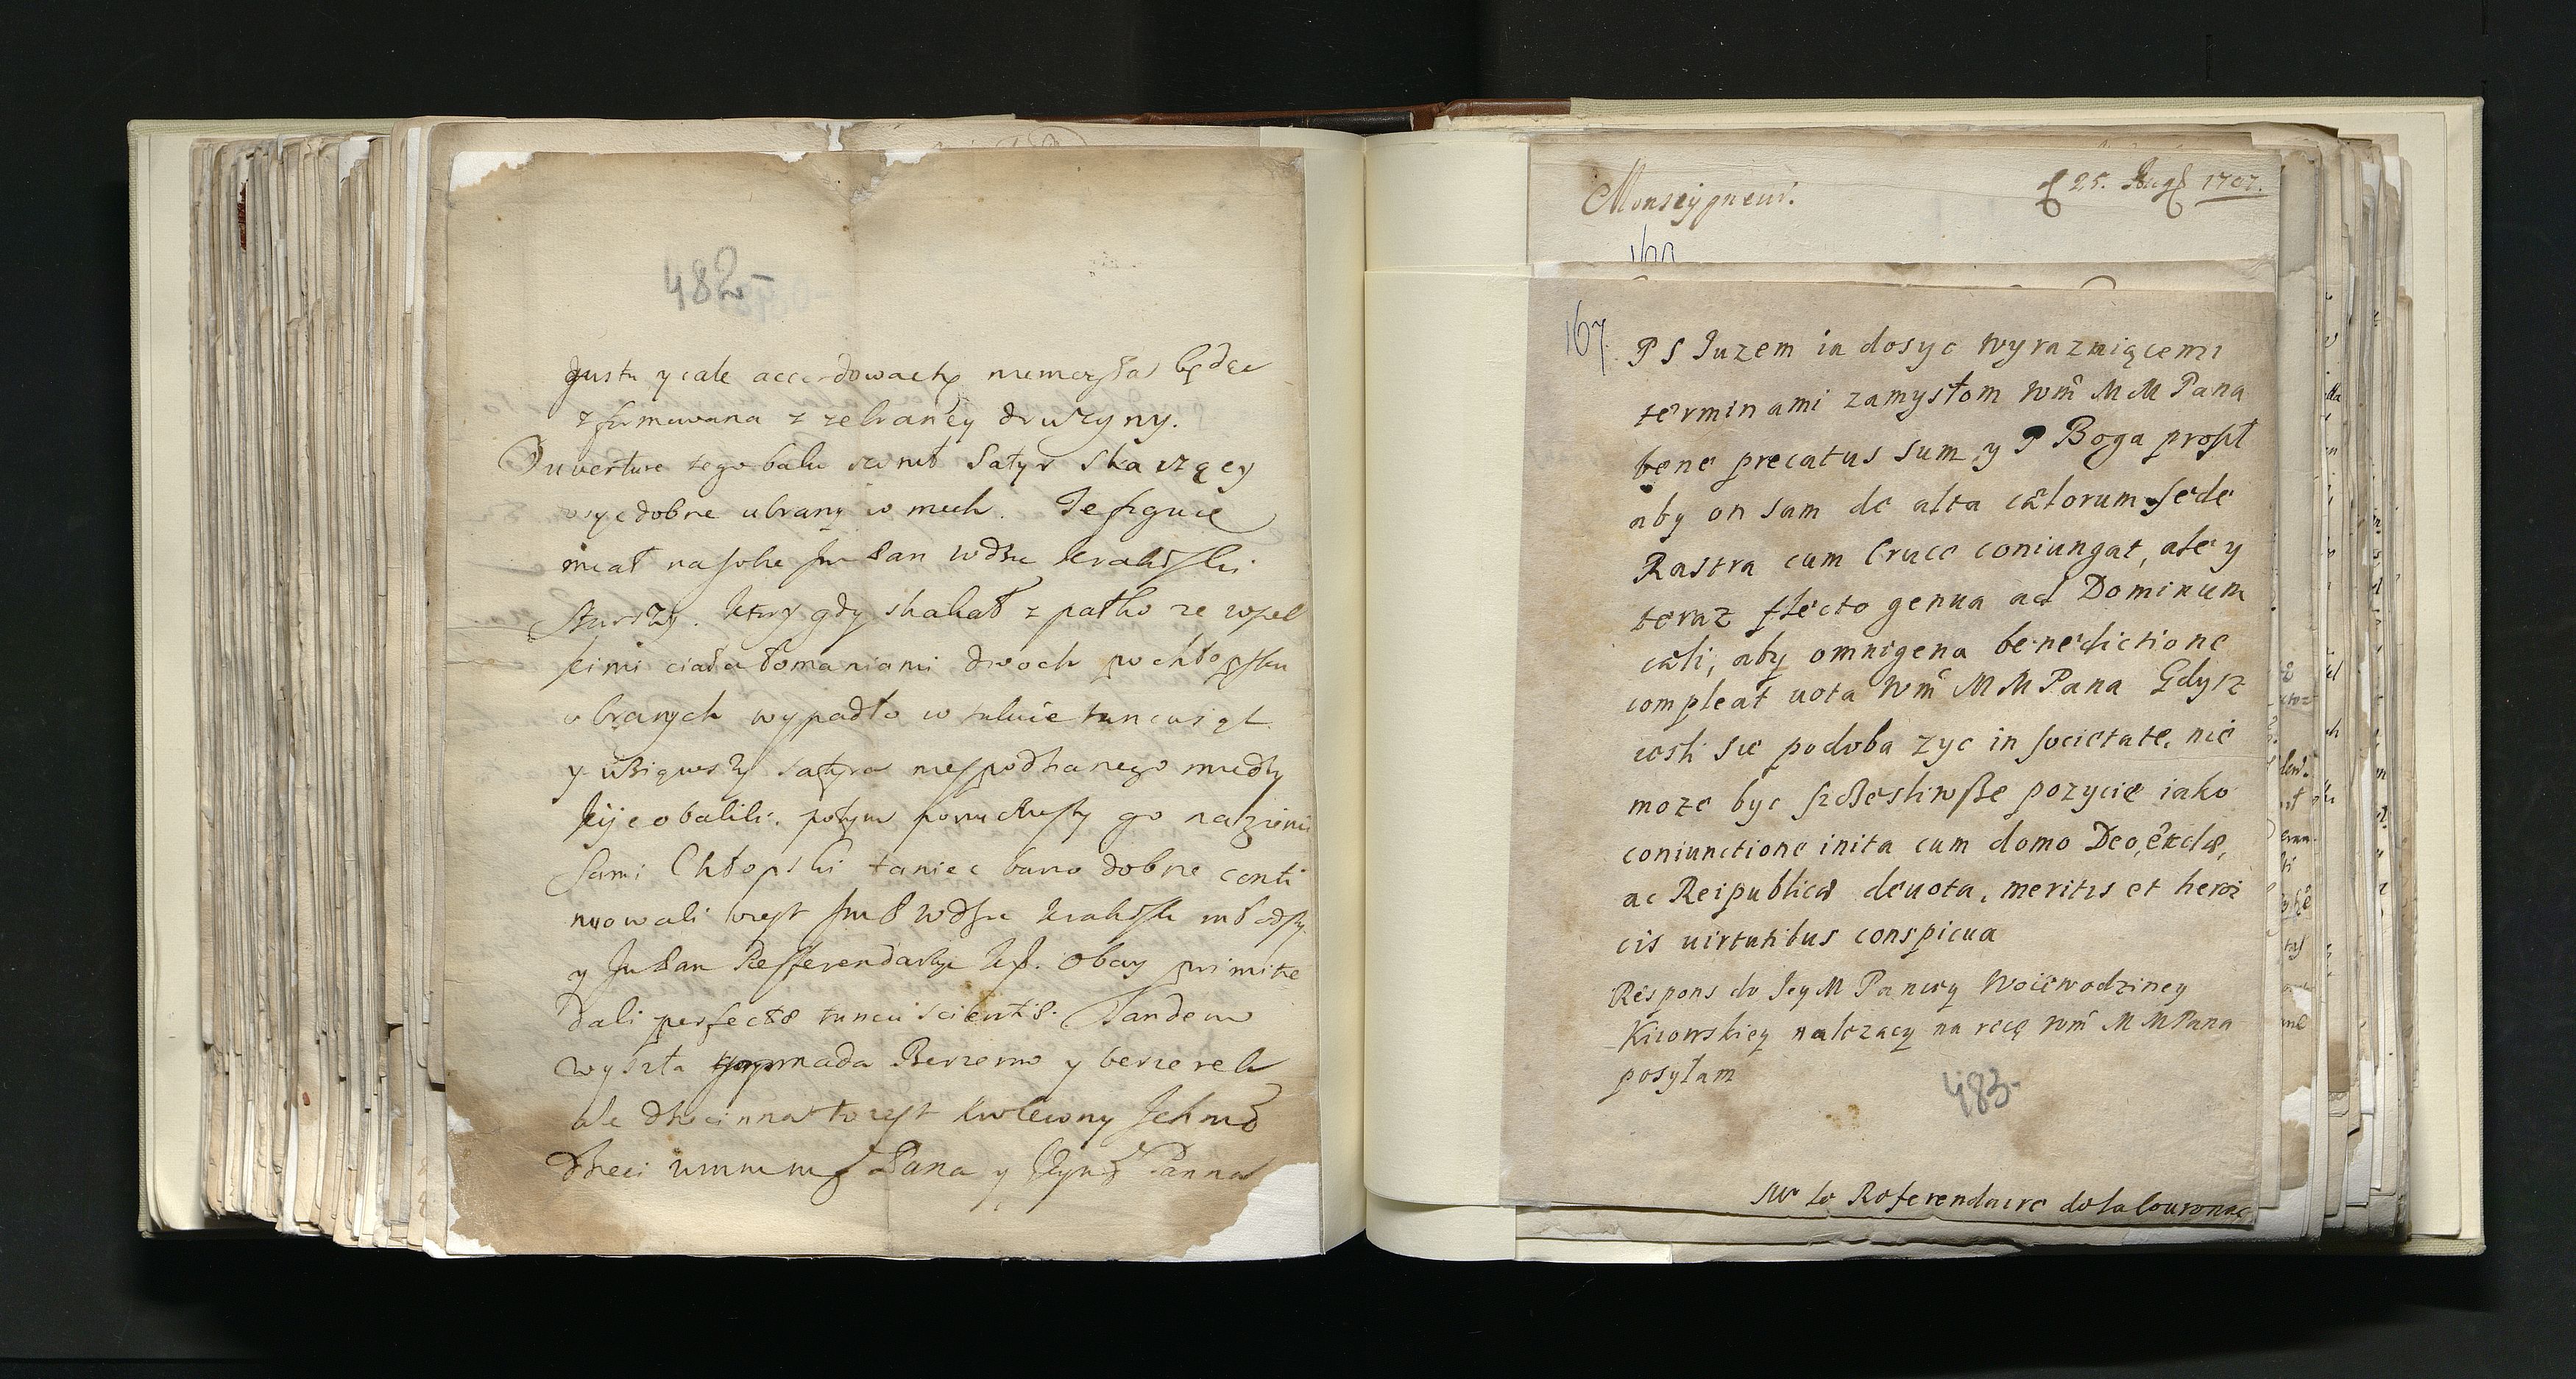 482
gustu y cale accordowac się niemogła będąc
zformowana z zebraney drużyny.
Ouverture tego balu czynił Satyr skaczący
dobrze ubrany w mech. Te figurę
miał na sobie Jm Pan Wdzic Krakoski
Starszy. ktory gdy skakał z pałką ze wszel
kimi ciała łomaniami dwoch po chłopsku
ubranych wypadło w tułuie tancuiąc
y Satyra niespodzianego między
kije obalili. potym porzuciwszy go na ziemi
Sami Chłopski taniec barzo dobrze conti
nuowali iest Jm P Wdzic Krakoski młodszy
y Jm Pan Refferendarz Kor. obay
dali perfectæ tancu scientiæ. Tandem
wyszła gromada Pasterzow y
ale dziecinna to iest Krolewny Jchmć
Dzieci Pana y Jeymć Panna
Monseigneur.
25. Aug 1707.
167.
P S Juzem ia dosyc wyraznięcemi
terminami zamysłom Wm̃ M M Pana
bene precatus sum, y P Boga prosił
aby on sam de alta cælorum sede
Rastra cum Cruce coniungat, ale y
teraz flecto genua ad Dominum
cæli, aby omnigena benedictione
compleat uota Wm̃ M M Pana Gdysz
iesli sie podoba zyc in societate, nie
moze byc szczesliwsze pozycie iako
coniunctione inita cum domo Deo, ecclæ,
ac Reipublicæ deuota, meritis et heroi
cis uirtutibus conspicua
Respons do Jey M Paniey Woiewodziney
Kiiowskiey nalezacy na ręcę Wm̃ M M Pana
posyłam
483
Mr le Referendaire de la Couronne